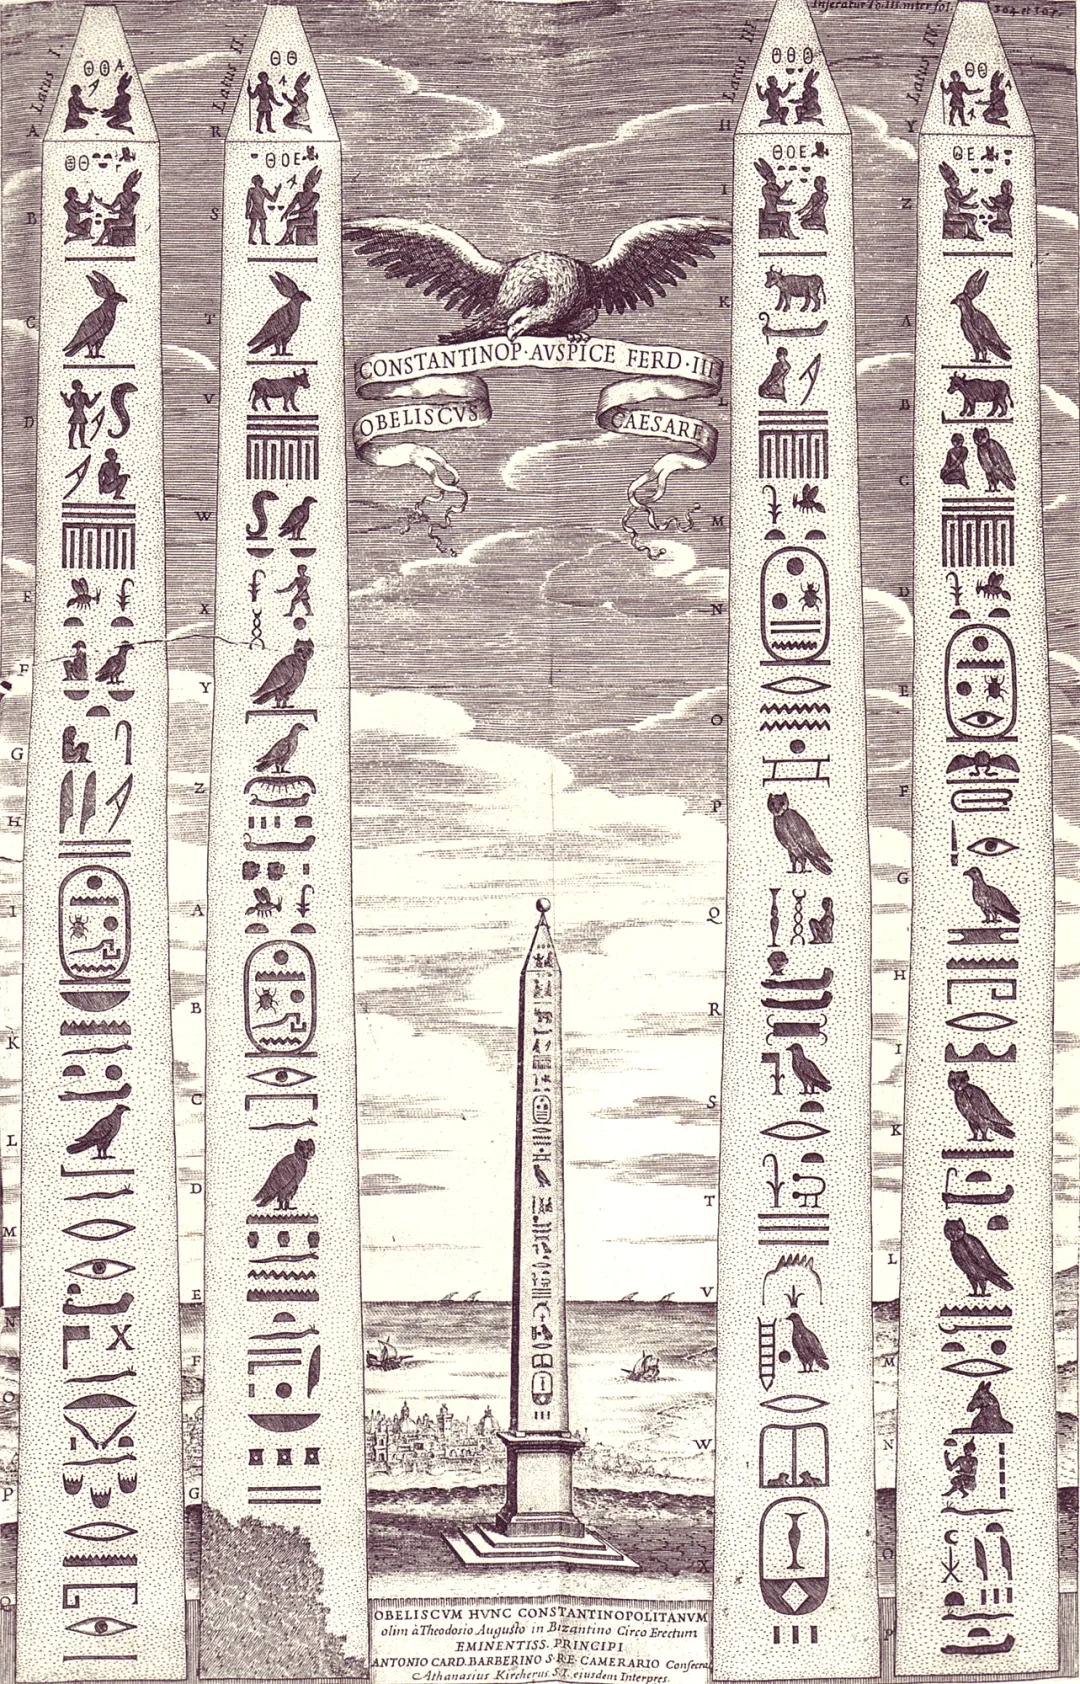 Inseratur To. III. inter fol. 304 et 307.
Latus I.
Latus II.
Latus III.
Latus IV.
CONSTANTINOP · AVSPICE FERD · III
OBELISCVS
CAESARE
OBELISCVM HVNC CONSTANTINOPOLITANVM
olim à Theodosio Augusto in Bizantino Circo Erectum
EMINENTISS. PRINCIPI
ANTONIO CARD. BARBERINO S·R·E· CAMERARIO Consecrat
Athanasius Kircherus. S.I. eiusdem Interpres.
A
B
C
D
E
F
G
H
I
K
L
M
N
O
P
Q
R
S
T
V
W
X
Y
Z
A
B
C
D
E
F
G
H
I
K
L
M
N
O
P
Q
R
S
T
V
W
X
Y
Z
A
B
C
D
E
F
G
H
I
K
L
M
N
O
P